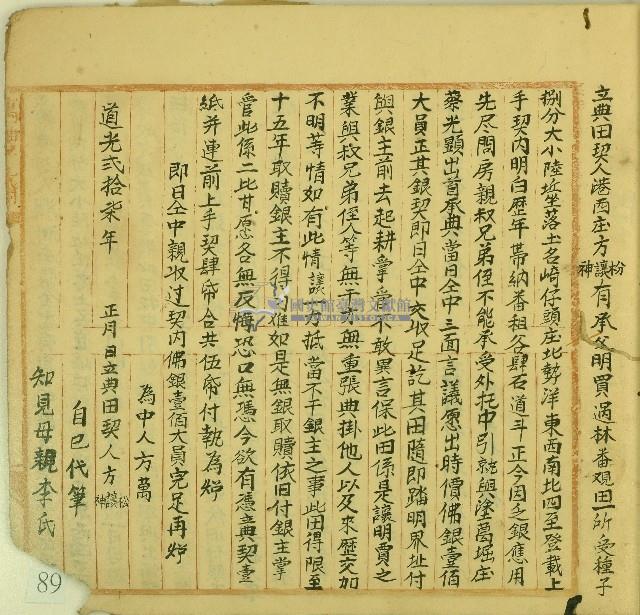 立典田契人港西庄方松讓神有承父明買過林番覌田一所受種子
捌分大小陸坵坐落土名崎仔頭庄北勢洋東西南北四至登載上
手契内明白歴年帶納番租谷肆石道斗正今因乏銀應用
先尽問房親叔兄弟侄不能承受外托中引就與塗葛堀庄
蔡光顕出首承典當日仝中三面言議愿出時價佛銀壹佰
大員正其銀契即日仝中交收足訖其田隨即踏明界址付
與銀主前去起耕掌管不敢異言保此田係是讓明買之
業與叔兄弟侄人等無干亦無重張典掛他人以及来歴交加
不明等情如有此情讓出力抵當不干銀主之事此田得限至
十五年取贖銀主不得刁難如是無銀取贖依旧付銀主掌
管此係二比甘愿各無反悔恐口無憑今欲有憑立典契壹
紙并連前上手契肆帋合共伍帋付執為炤
即日仝中親收过契内佛銀壹佰大員完足再炤
為中人方萬
道光弍拾柒年 正月 日立典田契人方松讓神
自己代筆
知見母親李氏
國史館臺灣文獻館
89